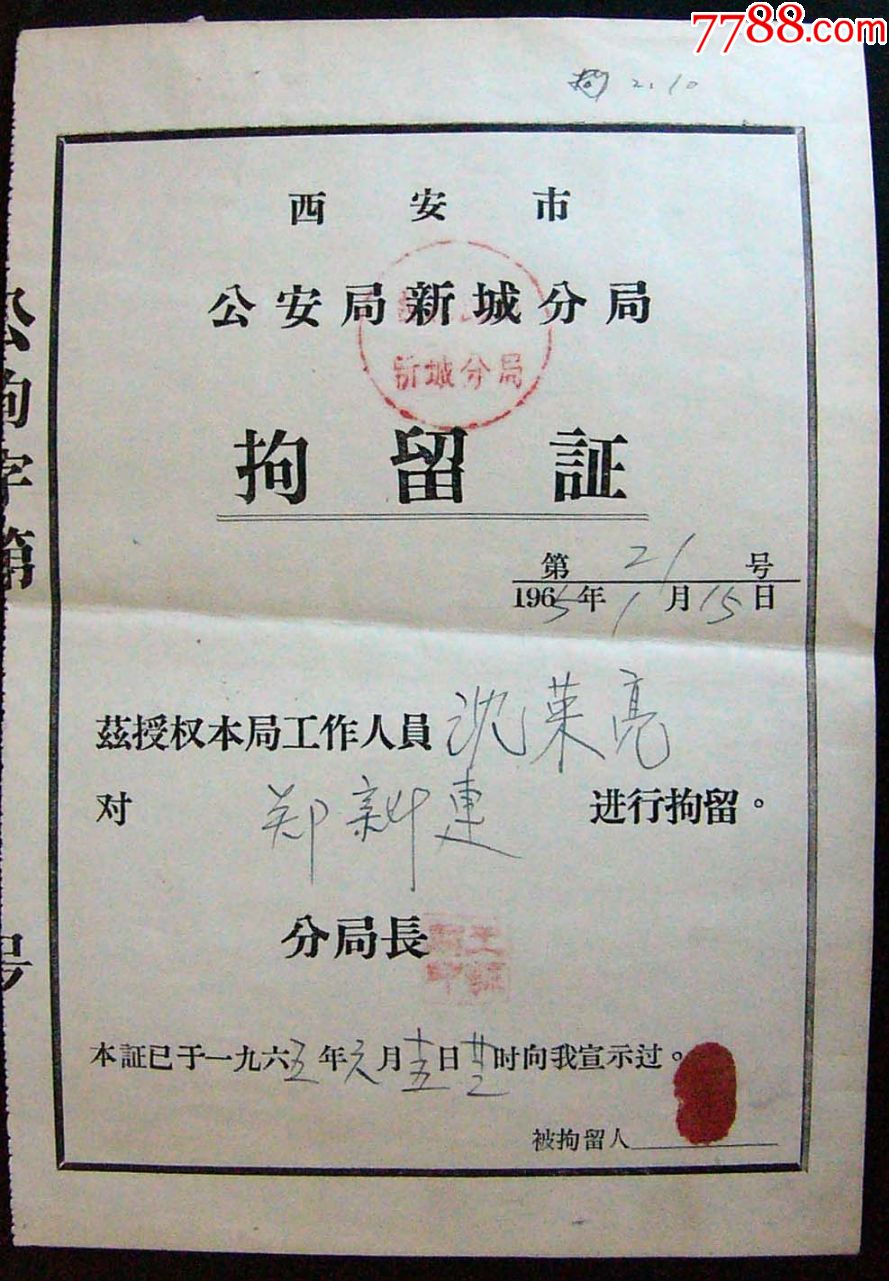 7788.com
拘 2.10
西安市
公安局新城分局
新城分局
拘留証
第 21 号
1965年1月15日
茲授权本局工作人員 沈莱亮
对 郑新连 进行拘留。
分局長
本証已于一九六五年元月十五日廿二时向我宣示过。
被拘留人
公拘字第
号